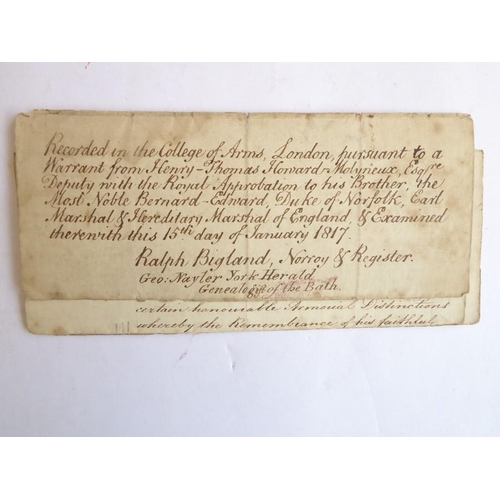 Recorded in the College of Arms, London, pursuant to a
Warrant from Henry-Thomas Howard-Molyneux, Esqre
Deputy with the Royal Approbation to his Brother, the
Most Noble Bernard-Edward, Duke of Norfolk, Earl
Marshal & Hereditary Marshal of England, & Examined
therewith this 15th day of January 1817.
Ralph Bigland, Norroy & Register.
Geo: Nayler York Herald
Genealogist of the Bath.
certain honourable Armorial Distinctions
whereby the Remembrance of his faithful